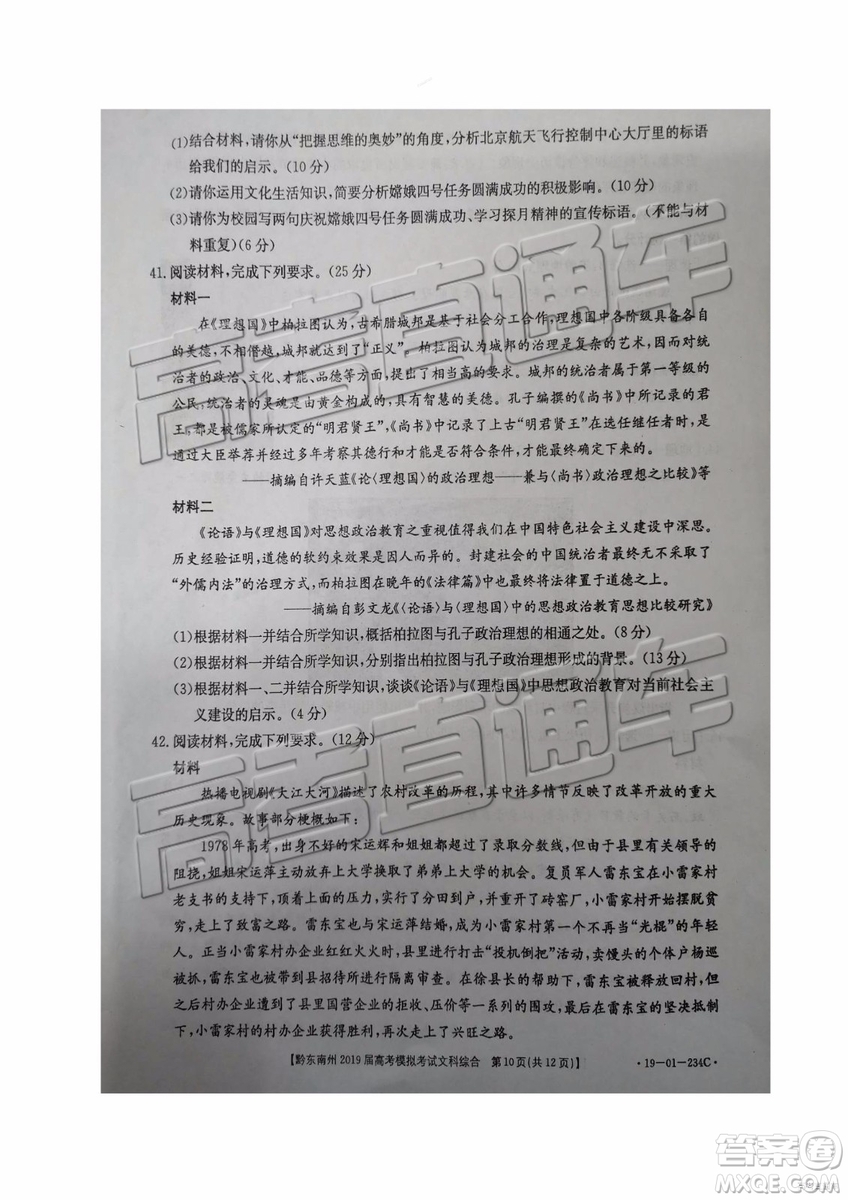 (1)结合材料,请你从“把握思维的奥妙”的角度,分析北京航天飞行控制中心大厅里的标语
给我们的启示。(10分)
(2)请你运用文化生活知识,简要分析嫦娥四号任务圆满成功的积极影响。(10分)
(3)请你为校园写两句庆祝嫦娥四号任务圆满成功、学习探月精神的宣传标语。(不能与材
料重复)(6分)
41.阅读材料,完成下列要求。(25分)
材料一
在《理想国》中柏拉图认为,古希腊城邦是基于社会分工合作,理想国中各阶级具备各自
的美德,不相僭越,城邦就达到了“正义”。柏拉图认为城邦的治理是复杂的艺术,因而对统
治者的政治、文化、才能、品德等方面,提出了相当高的要求。城邦的统治者属于第一等级的
公民,统治者的灵魂是由黄金构成的,具有智慧的美德。孔子编撰的《尚书》中所记录的君
王,都是被儒家所认定的“明君贤王”,《尚书》中记录了上古“明君贤王”在选任继任者时,则
通过大臣举荐并经过多年考察其德行和才能是否符合条件,才最终确定下来的。
——摘编自许天蓝《论〈理想国〉的政治理想——兼与〈尚书〉政治理想之比较》等
材料二
《论语》与《理想国》对思想政治教育之重视值得我们在中国特色社会主义建设中深思。
历史经验证明,道德的软约束效果是因人而异的。封建社会的中国统治者最终无不采取了
“外儒内法”的治理方式,而柏拉图在晚年的《法律篇》中也将法律置于道德之上。
——摘编自彭文龙《〈论语〉与〈理想国〉中的思想政治教育思想比较研究》
(1)根据材料一并结合所学知识,概括柏拉图与孔子政治理想的相通之处。(8分)
(2)根据材料一并结合所学知识,分别指出柏拉图与孔子政治理想形成的背景。(13分)
(3)根据材料一、二并结合所学知识,谈谈《论语》与《理想国》中思想政治教育对当前社会主
义建设的启示。(4分)
42.阅读材料,完成下列要求。(12分)
材料
热播电视剧《大江大河》描述了农村改革的历程,其中许多情节反映了改革开放的重大
历史现象。故事部分梗概如下:
1978年高考,出身不好的宋运辉和姐姐都超过了录取分数线,但由于县里有关领导的
阻挠,姐姐宋运萍主动放弃上大学换取了弟弟上大学的机会。复员军人雷东宝在小雷家村
老支书的支持下,顶着上面的压力,实行了分田到户,并重开了砖窑厂,小雷家村开始摆脱贫
穷,走上了致富之路。雷东宝也与宋运萍结婚,成为小雷家村第一个不再当“光棍”的年轻
人。正当小雷家村办企业红红火火时,县里进行“投机倒把”活动,卖馒头的个体户杨巡
被抓,雷东宝也被带到县招待所进行隔离审查。在徐县长的帮助下,雷东宝被释放回村,但
之后村办企业遭到了县里国营企业的拒收、压价等一系列的围攻,最后在雷东宝的坚决抵制
下,小雷家村的村办企业获得胜利,再次走上了兴旺之路。
【黔东南州2019届高考模拟考试文科综合 第10页(共12页)】
·19-01-234C·
高考直通车
高考直通车
答案圈
MXQE.COM